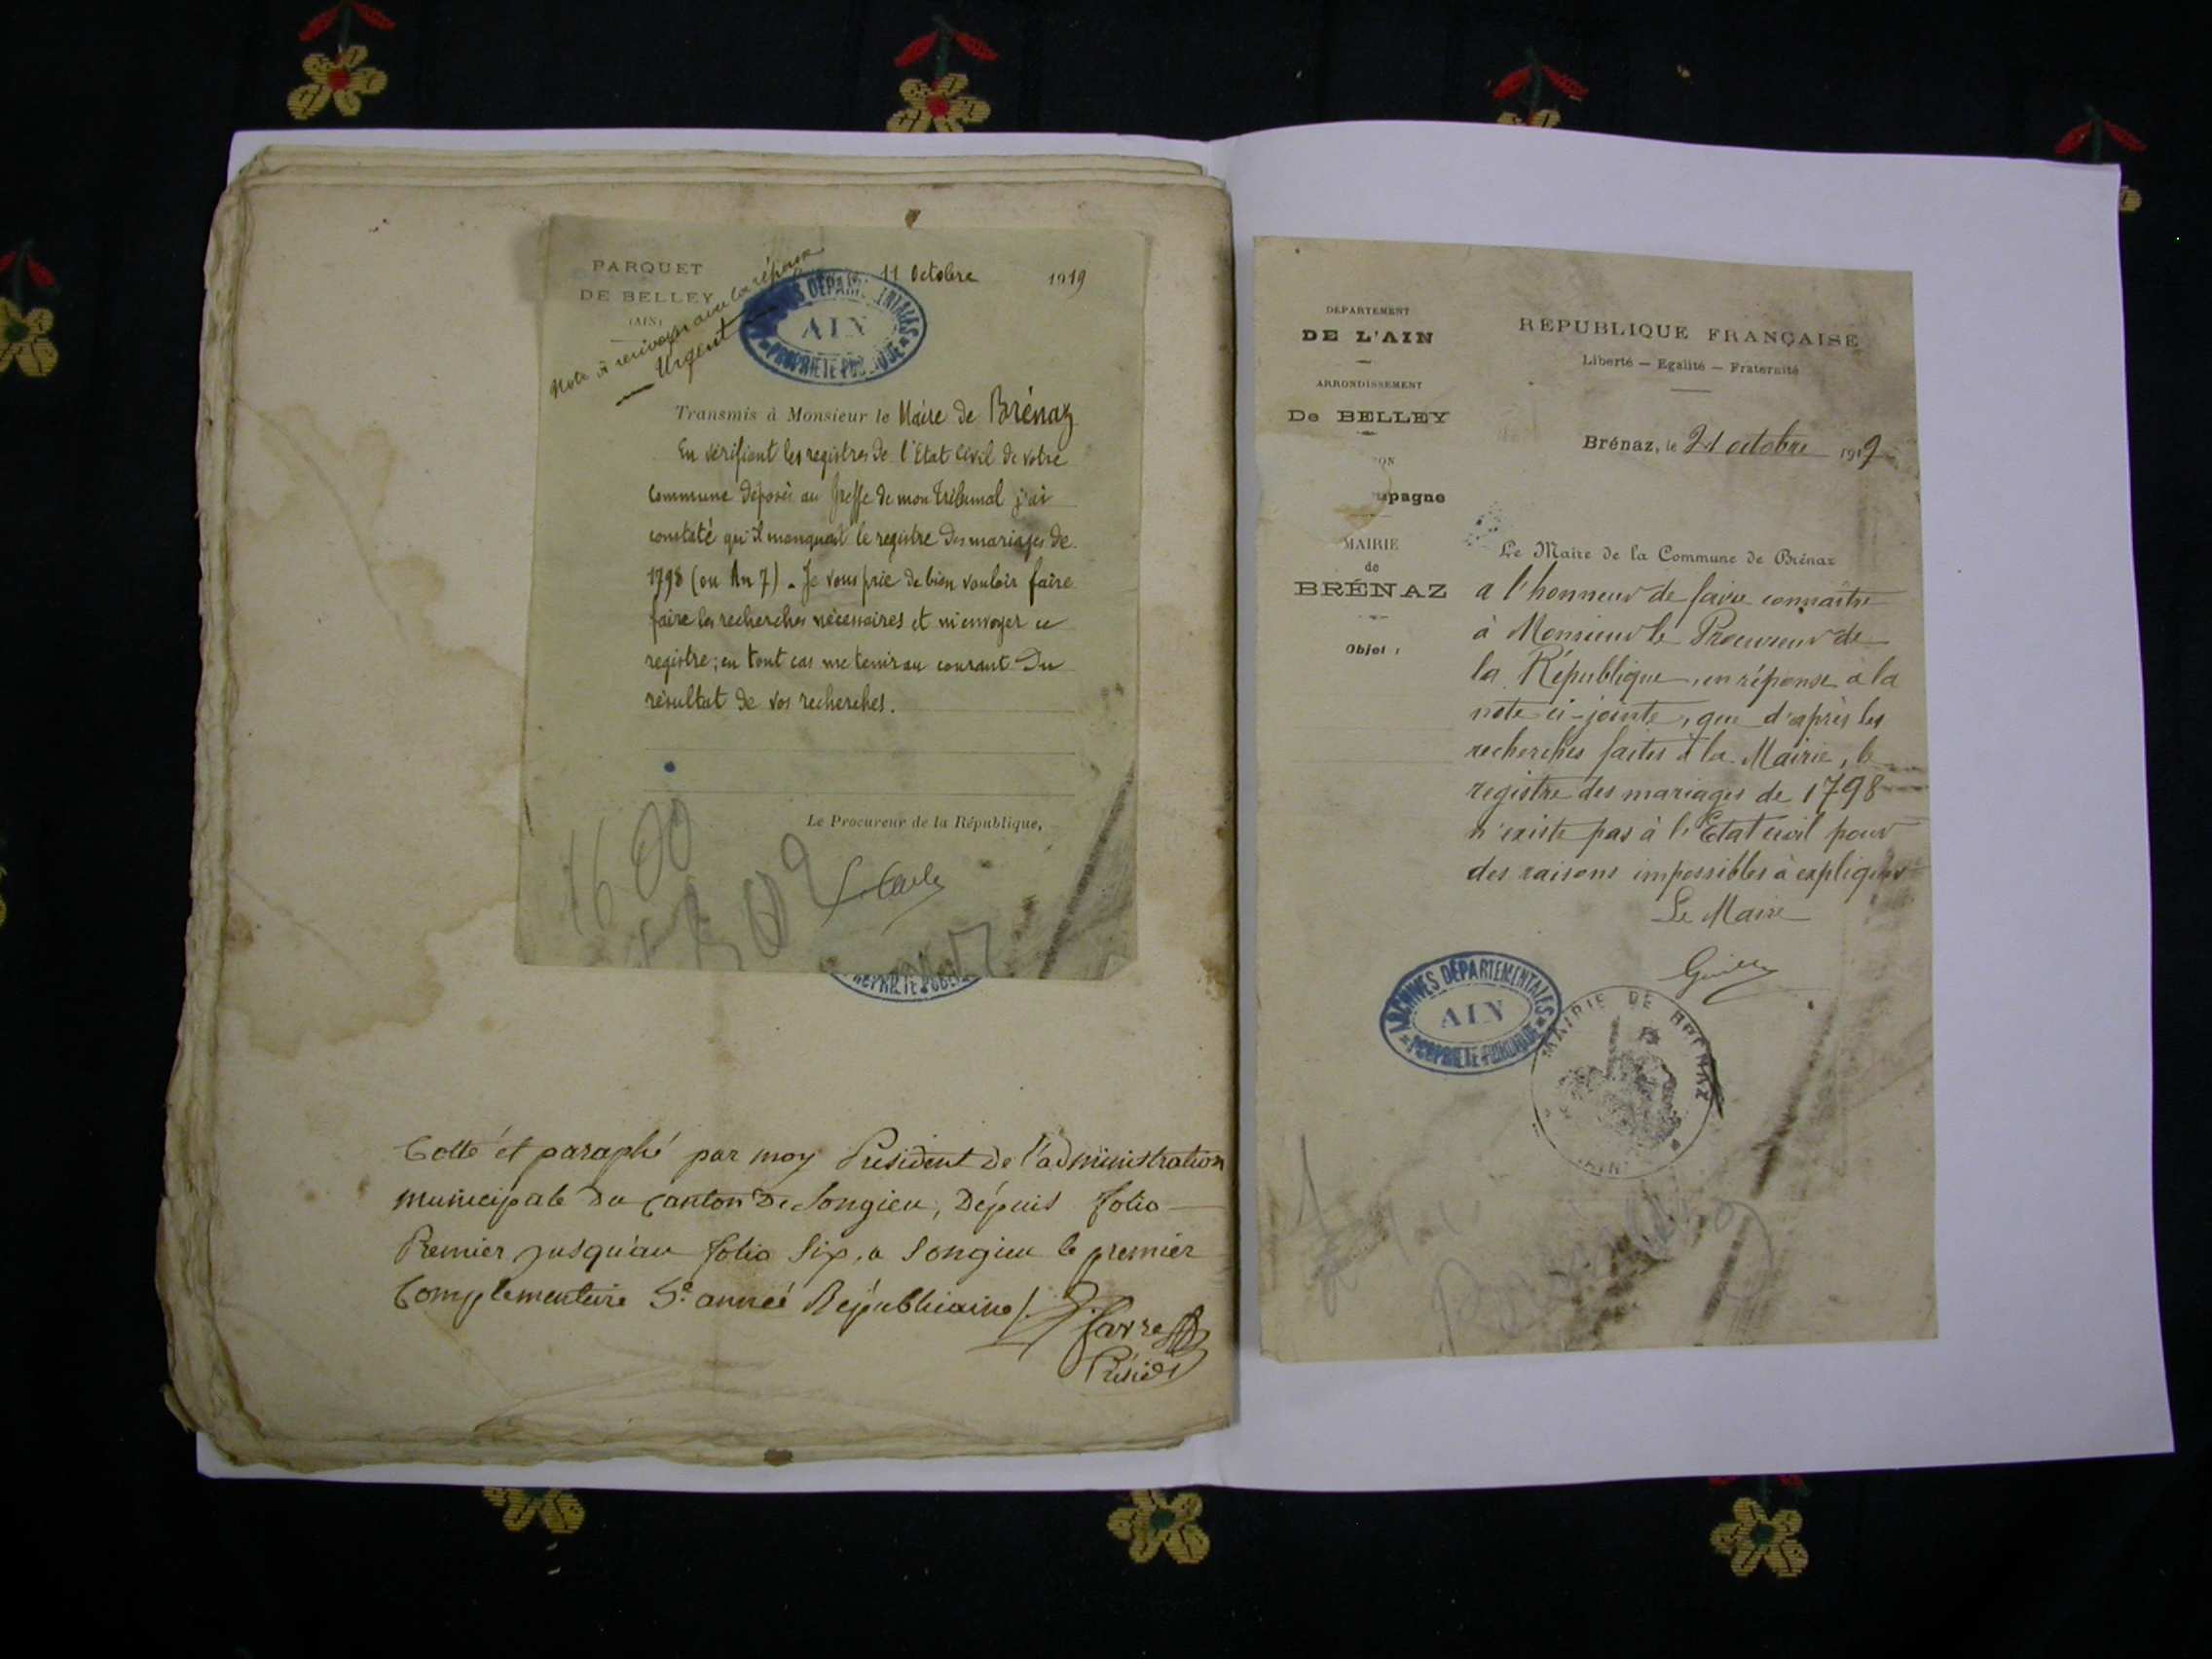 PARQUET
DE BELLEY
(AIN)
11 Octobre 1919
Note à renvoyer avec la réponse
Urgent
ARCHIVES DÉPARTEMENTALES
AIN
PROPRIETE PUBLIQUE
Transmis à Monsieur le Maire de Brénaz
En vérifiant les registres de l'Etat Civil de votre
commune déposés au Greffe de mon Tribunal j'ai
constaté qu'il manquait le registre des mariages de
1798 (ou An 7). Je vous prie de bien vouloir faire
faire les recherches nécessaires et m'envoyer ce
registre; en tout cas me tenir au courant du
résultat de vos recherches.
Le Procureur de la République,
1600
PROPRIETE PUBLIQUE
Cotté et paraphé par moy President de l'administration
municipale du Canton de Songieu, Dépuis folio
Premier jusqu'au folio Six, a Songieu le premier
Complementaire 5e. année Républicaine
Favre
Présidt
DÉPARTEMENT
DE L'AIN
ARRONDISSEMENT
De BELLEY
ON
mpagne
MAIRIE
de
BRÉNAZ
Objet :
RÉPUBLIQUE FRANÇAISE
Liberté — Egalité — Fraternité
Brénaz, le 21 octobre 1919
Le Maire de la Commune de Brénaz
a l'honneur de faire connaître
à Monsieur le Procureur de
la République, en réponse à la
note ci-jointe, que d'après les
recherches faites à la Mairie, le
registre des mariages de 1798
n'existe pas à l'Etat civil pour
des raisons impossibles à expliquer
Le Maire
ARCHIVES DÉPARTEMENTALES
AIN
PROPRIETE PUBLIQUE
MAIRIE DE BRENAZ
AIN